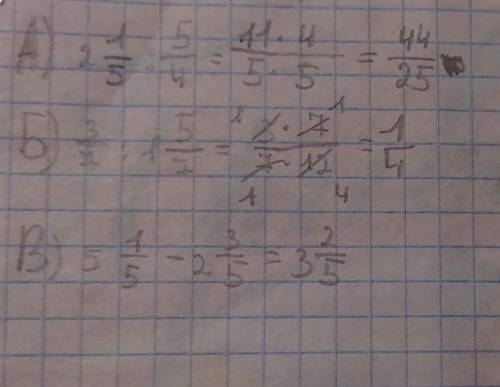 А) 2 1/5 : 5/4 = 11·4/5·5 = 44/25
Б) 3/7 : 1 5/7 = 3·7/7·12 = 1/4
В) 5 1/5 - 2 3/5 = 3 2/5